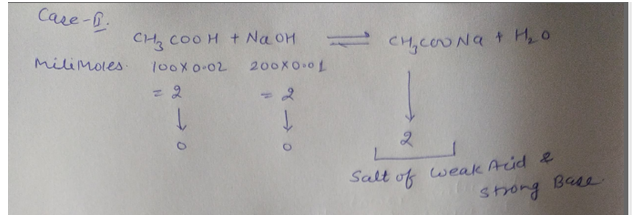 Case-II.
CH₃COOH + NaOH ⇌ CH₃COONa + H₂O
Milimoles. 100x0.02 200x0.01
= 2 = 2
↓ ↓ ↓
0 0 2
Salt of weak Acid &
strong Base